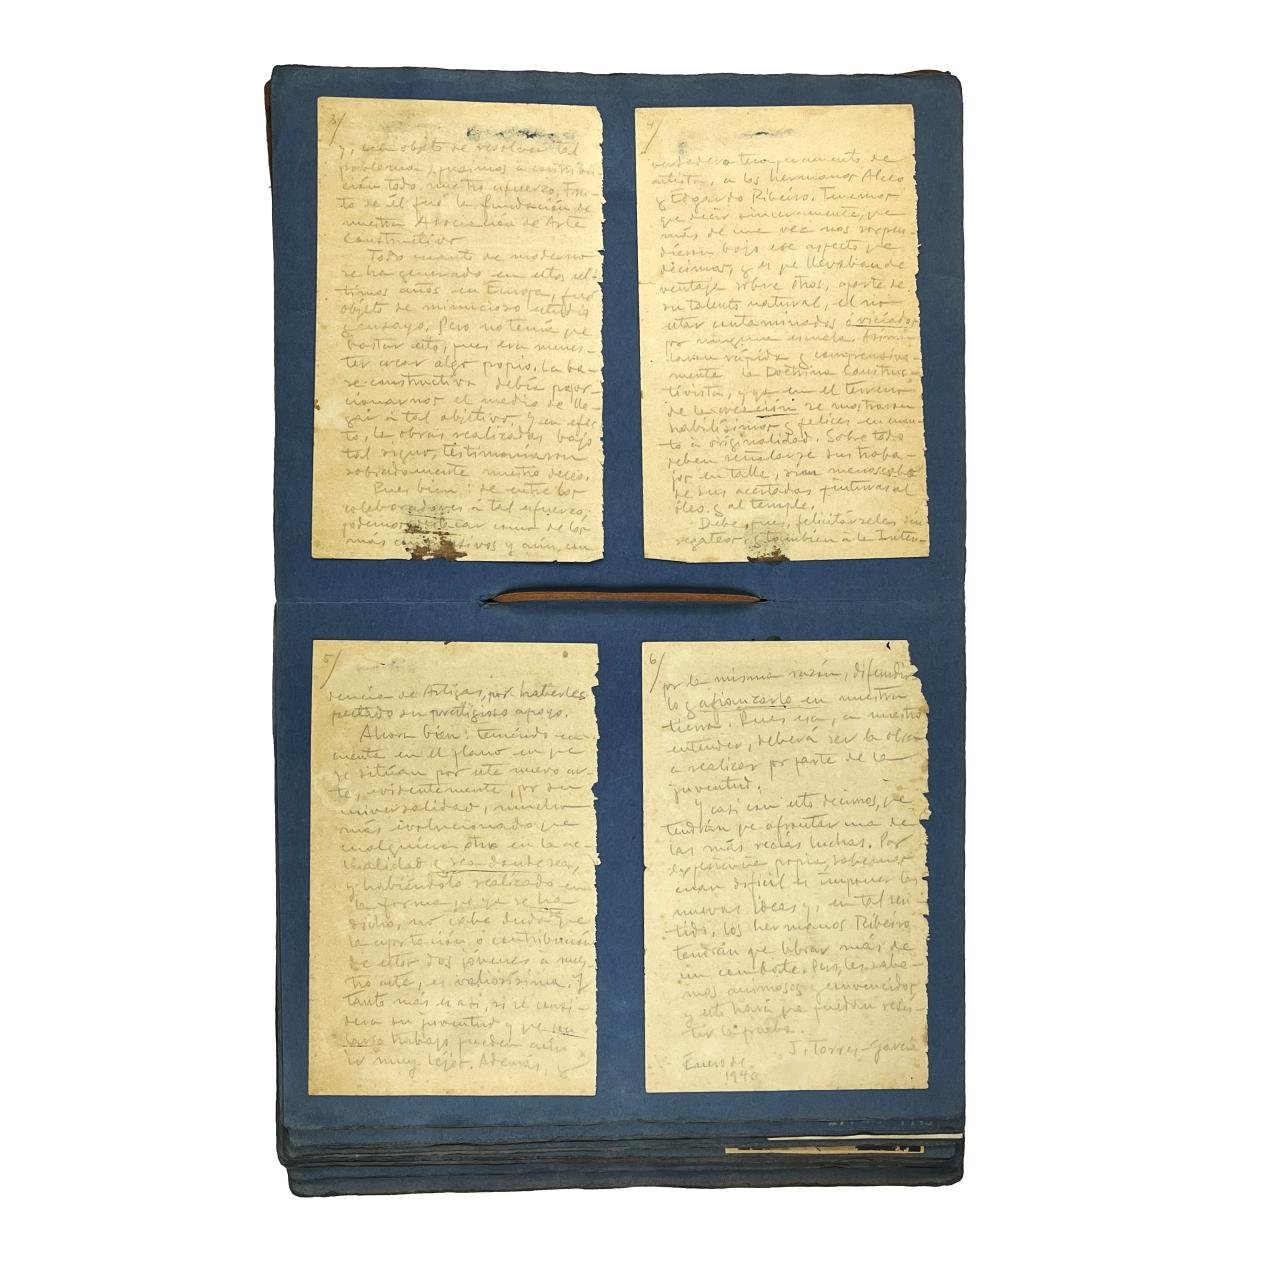 3/
y, con objeto de resolver tal
problema, pusimos a contribu-
ción todo nuestro esfuerzo. Fru-
to de él fué la fundación de
nuestra Asociación de Arte
Constructivo.
Todo cuanto de moderno
se ha generado en estos úl-
timos años en Europa, fué
objeto de minucioso estudio
y ensayo. Pero no tenía que
bastar esto, pues era menes-
ter crear algo propio. La ba-
se constructiva debía propor-
cionarnos el medio de lle-
gar a tal objetivo. Y en efec-
to, las obras realizadas bajo
tal signo, testimoniaron
sobradamente nuestro deseo.
Pues bien: de entre los
colaboradores a tal esfuerzo,
podemos como de los
más y aún, con
4/
verdadero temperamento de
artista, a los hermanos Alceo
y Edgardo Ribeiro. Tenemos
que decir sinceramente, que
más de una vez nos sorpren-
dieron bajo ese aspecto que
decimos, y es que llevaban de
ventaja sobre otros, aparte de
su talento natural, el no
estar contaminados o viciados
por ninguna escuela. Asimi-
laron rápida y comprensiva-
mente la Doctrina Construc-
tivista, y ya en el terreno
de la creación se mostraron
habilísimos y felices en cuan-
to a originalidad. Sobre todo
deben señalarse sus traba-
jos en talla, sin menoscabo
de sus acertadas pinturas al
óleo y al temple.
Debe, pues, felicitárseles sin
regateos, y también a la Inten-
5/
dencia de Artigas, por haberles
prestado su prestigioso apoyo.
Ahora bien: teniendo en
cuenta en el plano en que
se sitúan por este nuevo ar-
te, evidentemente, por su
universalidad, mucho
más evolucionado que
cualquiera otro en la ac-
tualidad y sea donde sea,
y habiéndolo realizado en
la forma que ya se ha
dicho, no cabe duda que
la aportación o contribución
de estos dos jóvenes a nues-
tro arte, es valiosísima. Y
tanto más es así, si se consi-
dera su juventud y que sin
largo trabajo pueden aún
ir muy lejos. Además, y
6/
por la misma razón, difundir-
lo y afianzarlo en nuestra
tierra. Pues esa, a nuestro
entender, deberá ser la obra
a realizar por parte de la
juventud.
Y casi con esto decimos, que
tendrán que afrontar una de
las más recias luchas. Por
experiencia propia, sabemos
cuan difícil es imponer las
nuevas ideas y, en tal sen-
tido, los hermanos Ribeiro
tendrán que librar más de
un combate. Pero, les sabe-
mos animosos y convencidos
y esto hará que puedan resis-
tir la prueba.
J. Torres-García
Enero de
1940